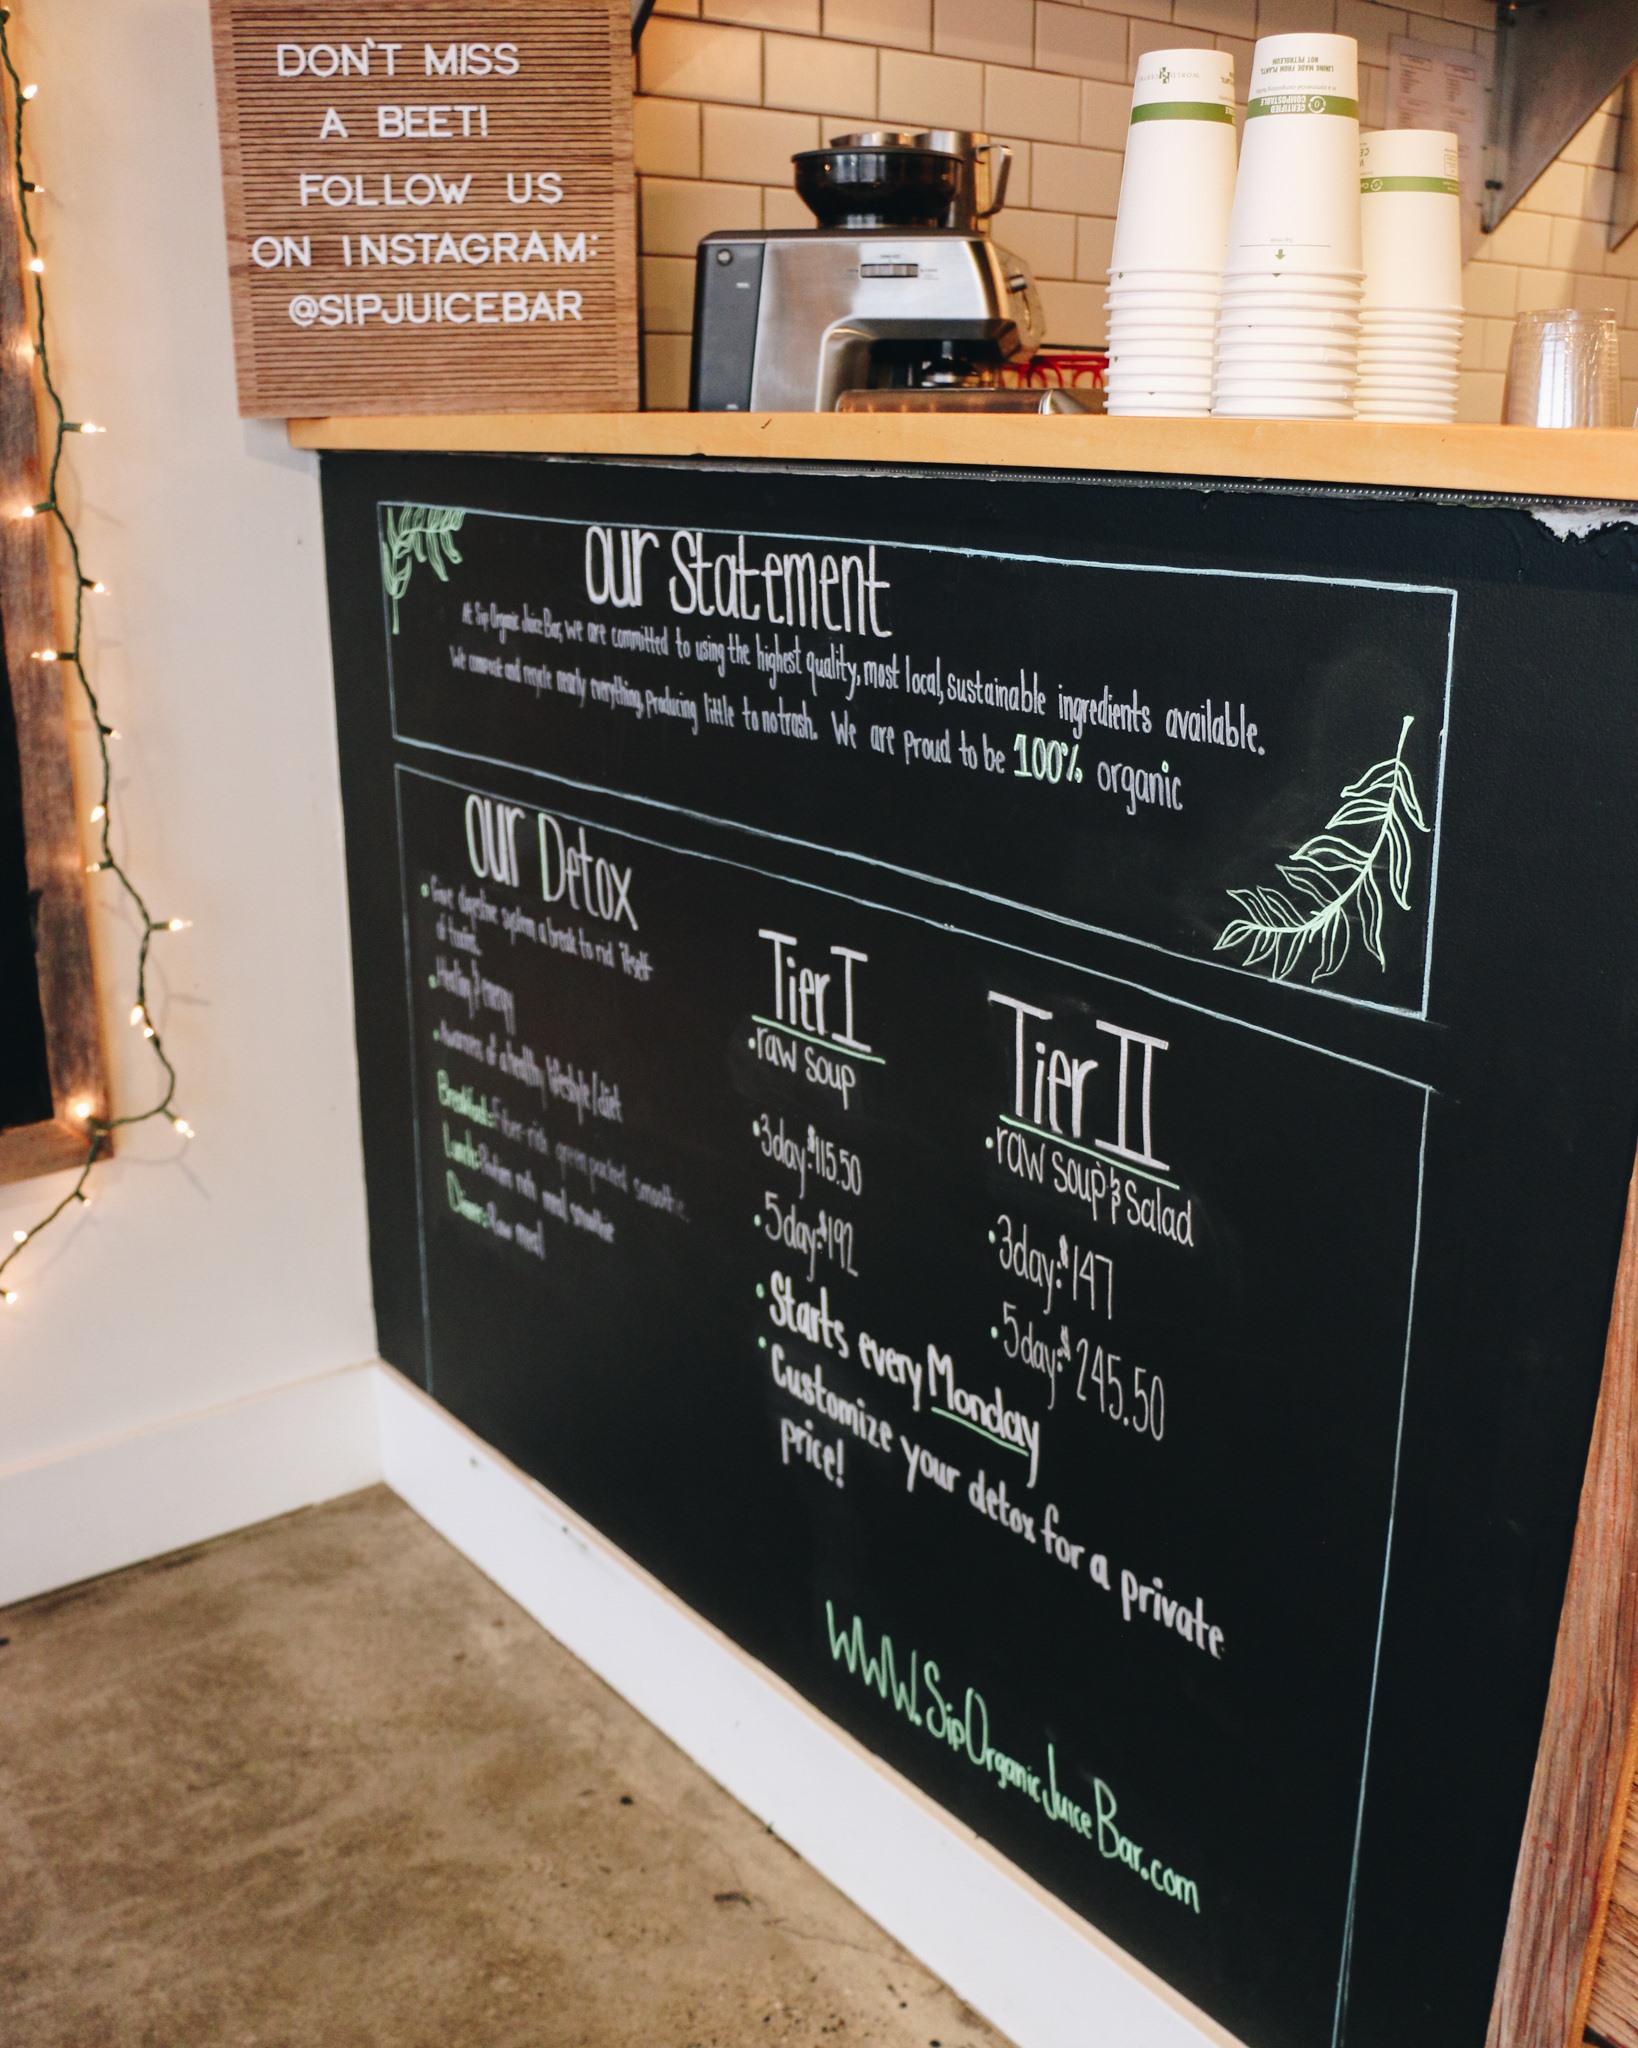 DON'T MISS
A BEET!
FOLLOW US
ON INSTAGRAM:
@SIPJUICEBAR
WORLD
CERTIFIED
COMPOSTABLE
LINING MADE FROM PLANTS,
NOT PETROLEUM
our Statement
At Sip Organic Juice Bar, we are committed to using the highest quality, most local, sustainable ingredients available.
We compost and recycle nearly everything, producing little to no trash. We are proud to be 100% organic
our Detox
• Give digestive system a break to rid itself
of toxins.
• Healing & energy
• Awareness of a healthy lifestyle/diet
Breakfast: Fiber-rich green packed smoothie
Lunch: Protein rich meal smoothie
Dinner: Raw meal
Tier I
• raw soup
• 3day: $115.50
• 5day: $192
Tier II
• raw soup & Salad
• 3day: $147
• 5day: $245.50
• Starts every Monday
• Customize your detox for a private
price!
WWW.SipOrganicJuiceBar.com